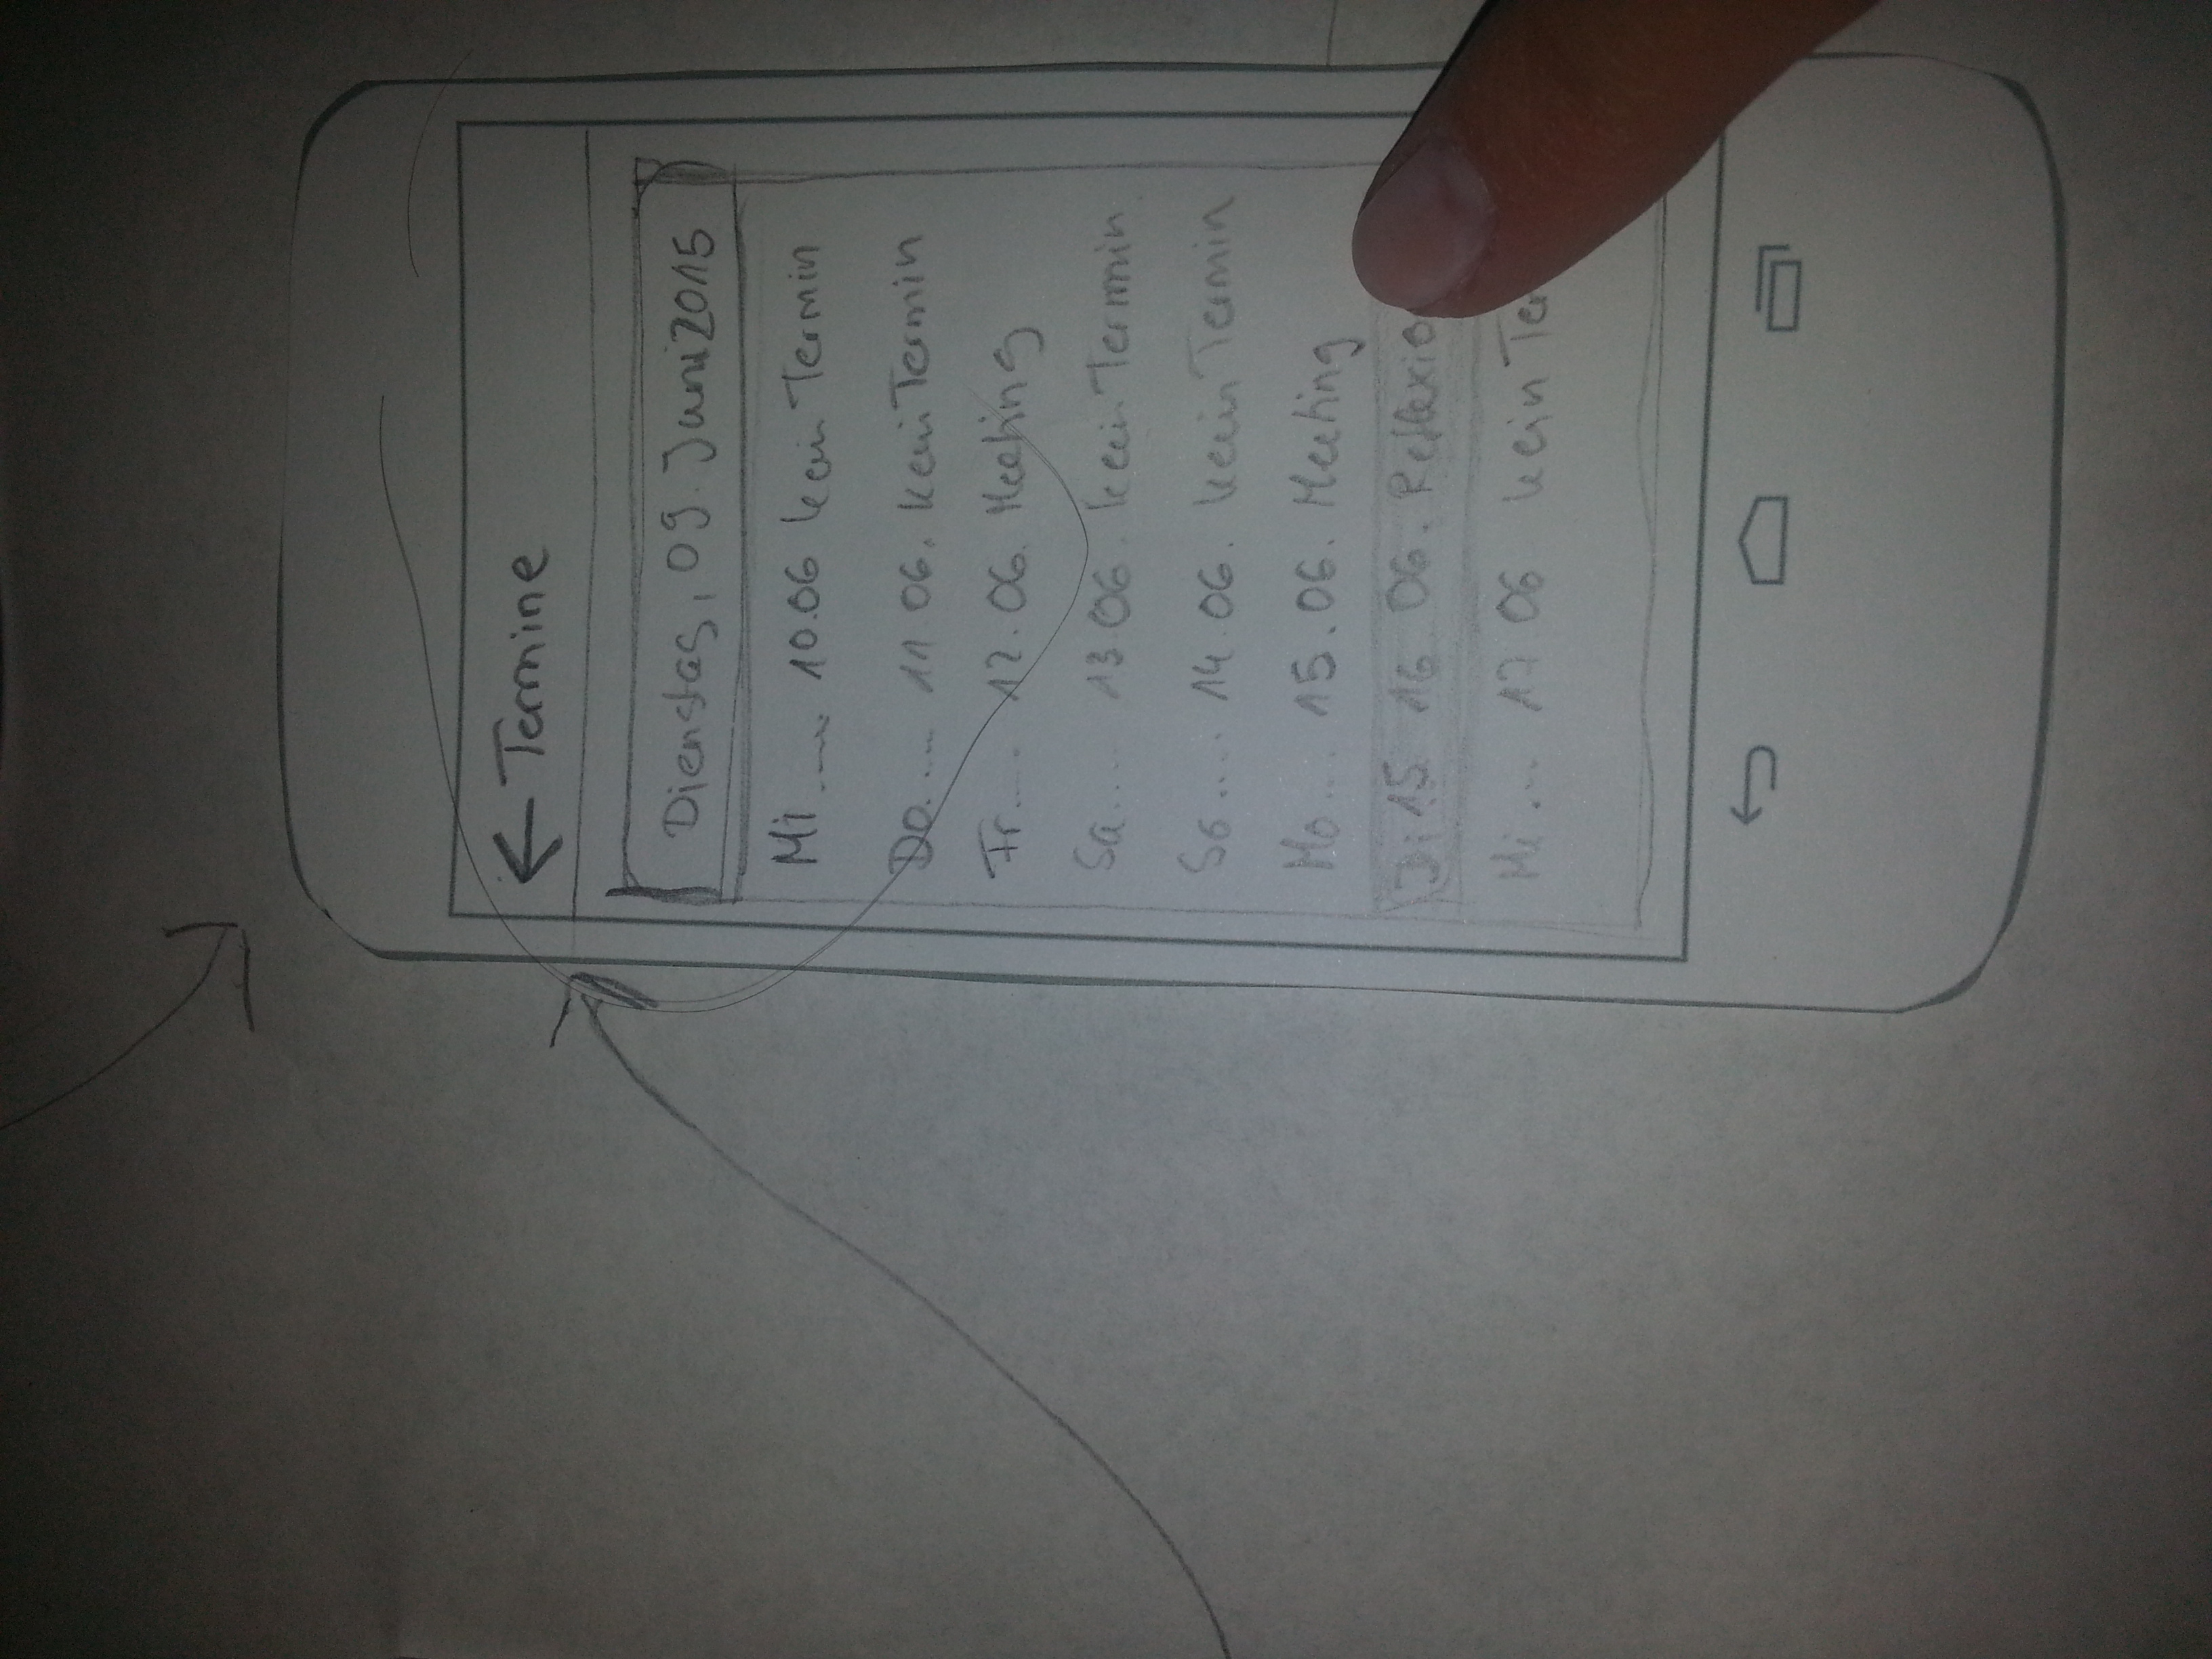 ← Termine
Dienstag, 09. Juni 2015
Mi ..... 10.06 kein Termin
Do ..... 11.06. kein Termin
Fr ..... 12.06. Meeting
Sa .... 13.06. kein Termin
So .... 14.06. kein Termin
Mo .... 15.06. Meeting
Di 15 16 06. Reflexio
Mi .... 17 06 kein Ter